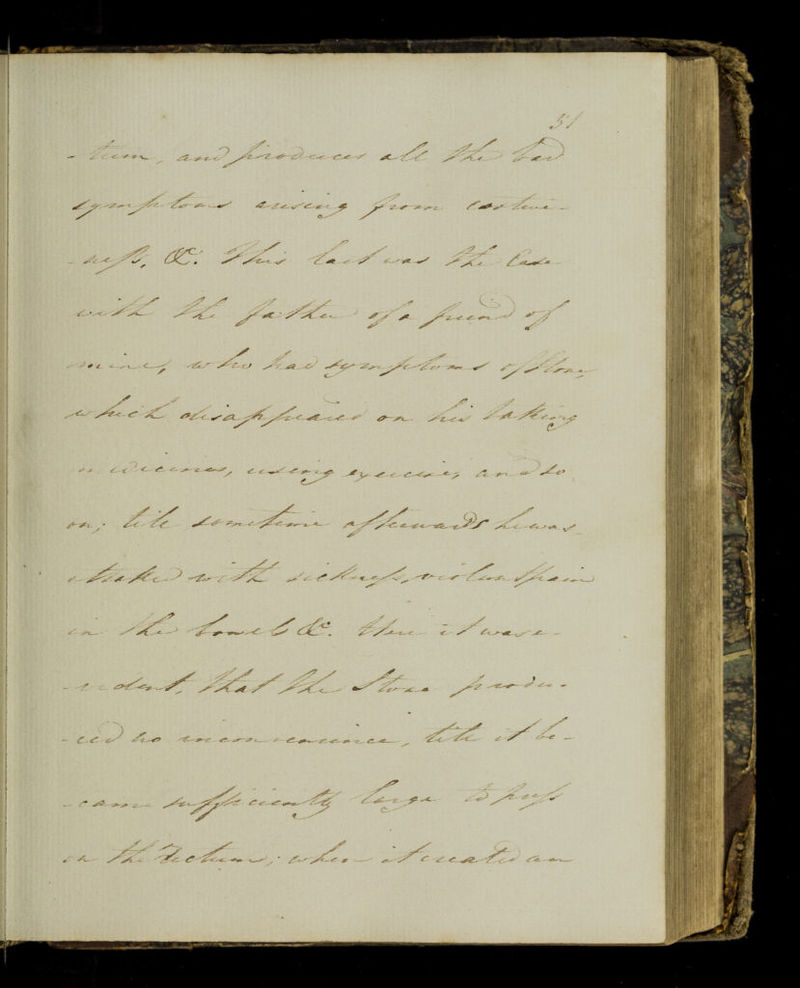 51
-tum, and produces all the bad
symptoms arising from costive-
-ness, &c. This last was the Case
with the father of a friend of
mine, who had symptoms of Stone,
which disappeared on his taking
medicines, using exercise, and so
on; till sometime afterwards he was
attaked with sickness, violent pain
in the bowels &c. Here it was e-
-vident, that the Stone produ-
-ced no inconvenience, till it be-
-came sufficiently large to press
on the Rectum; when it created an